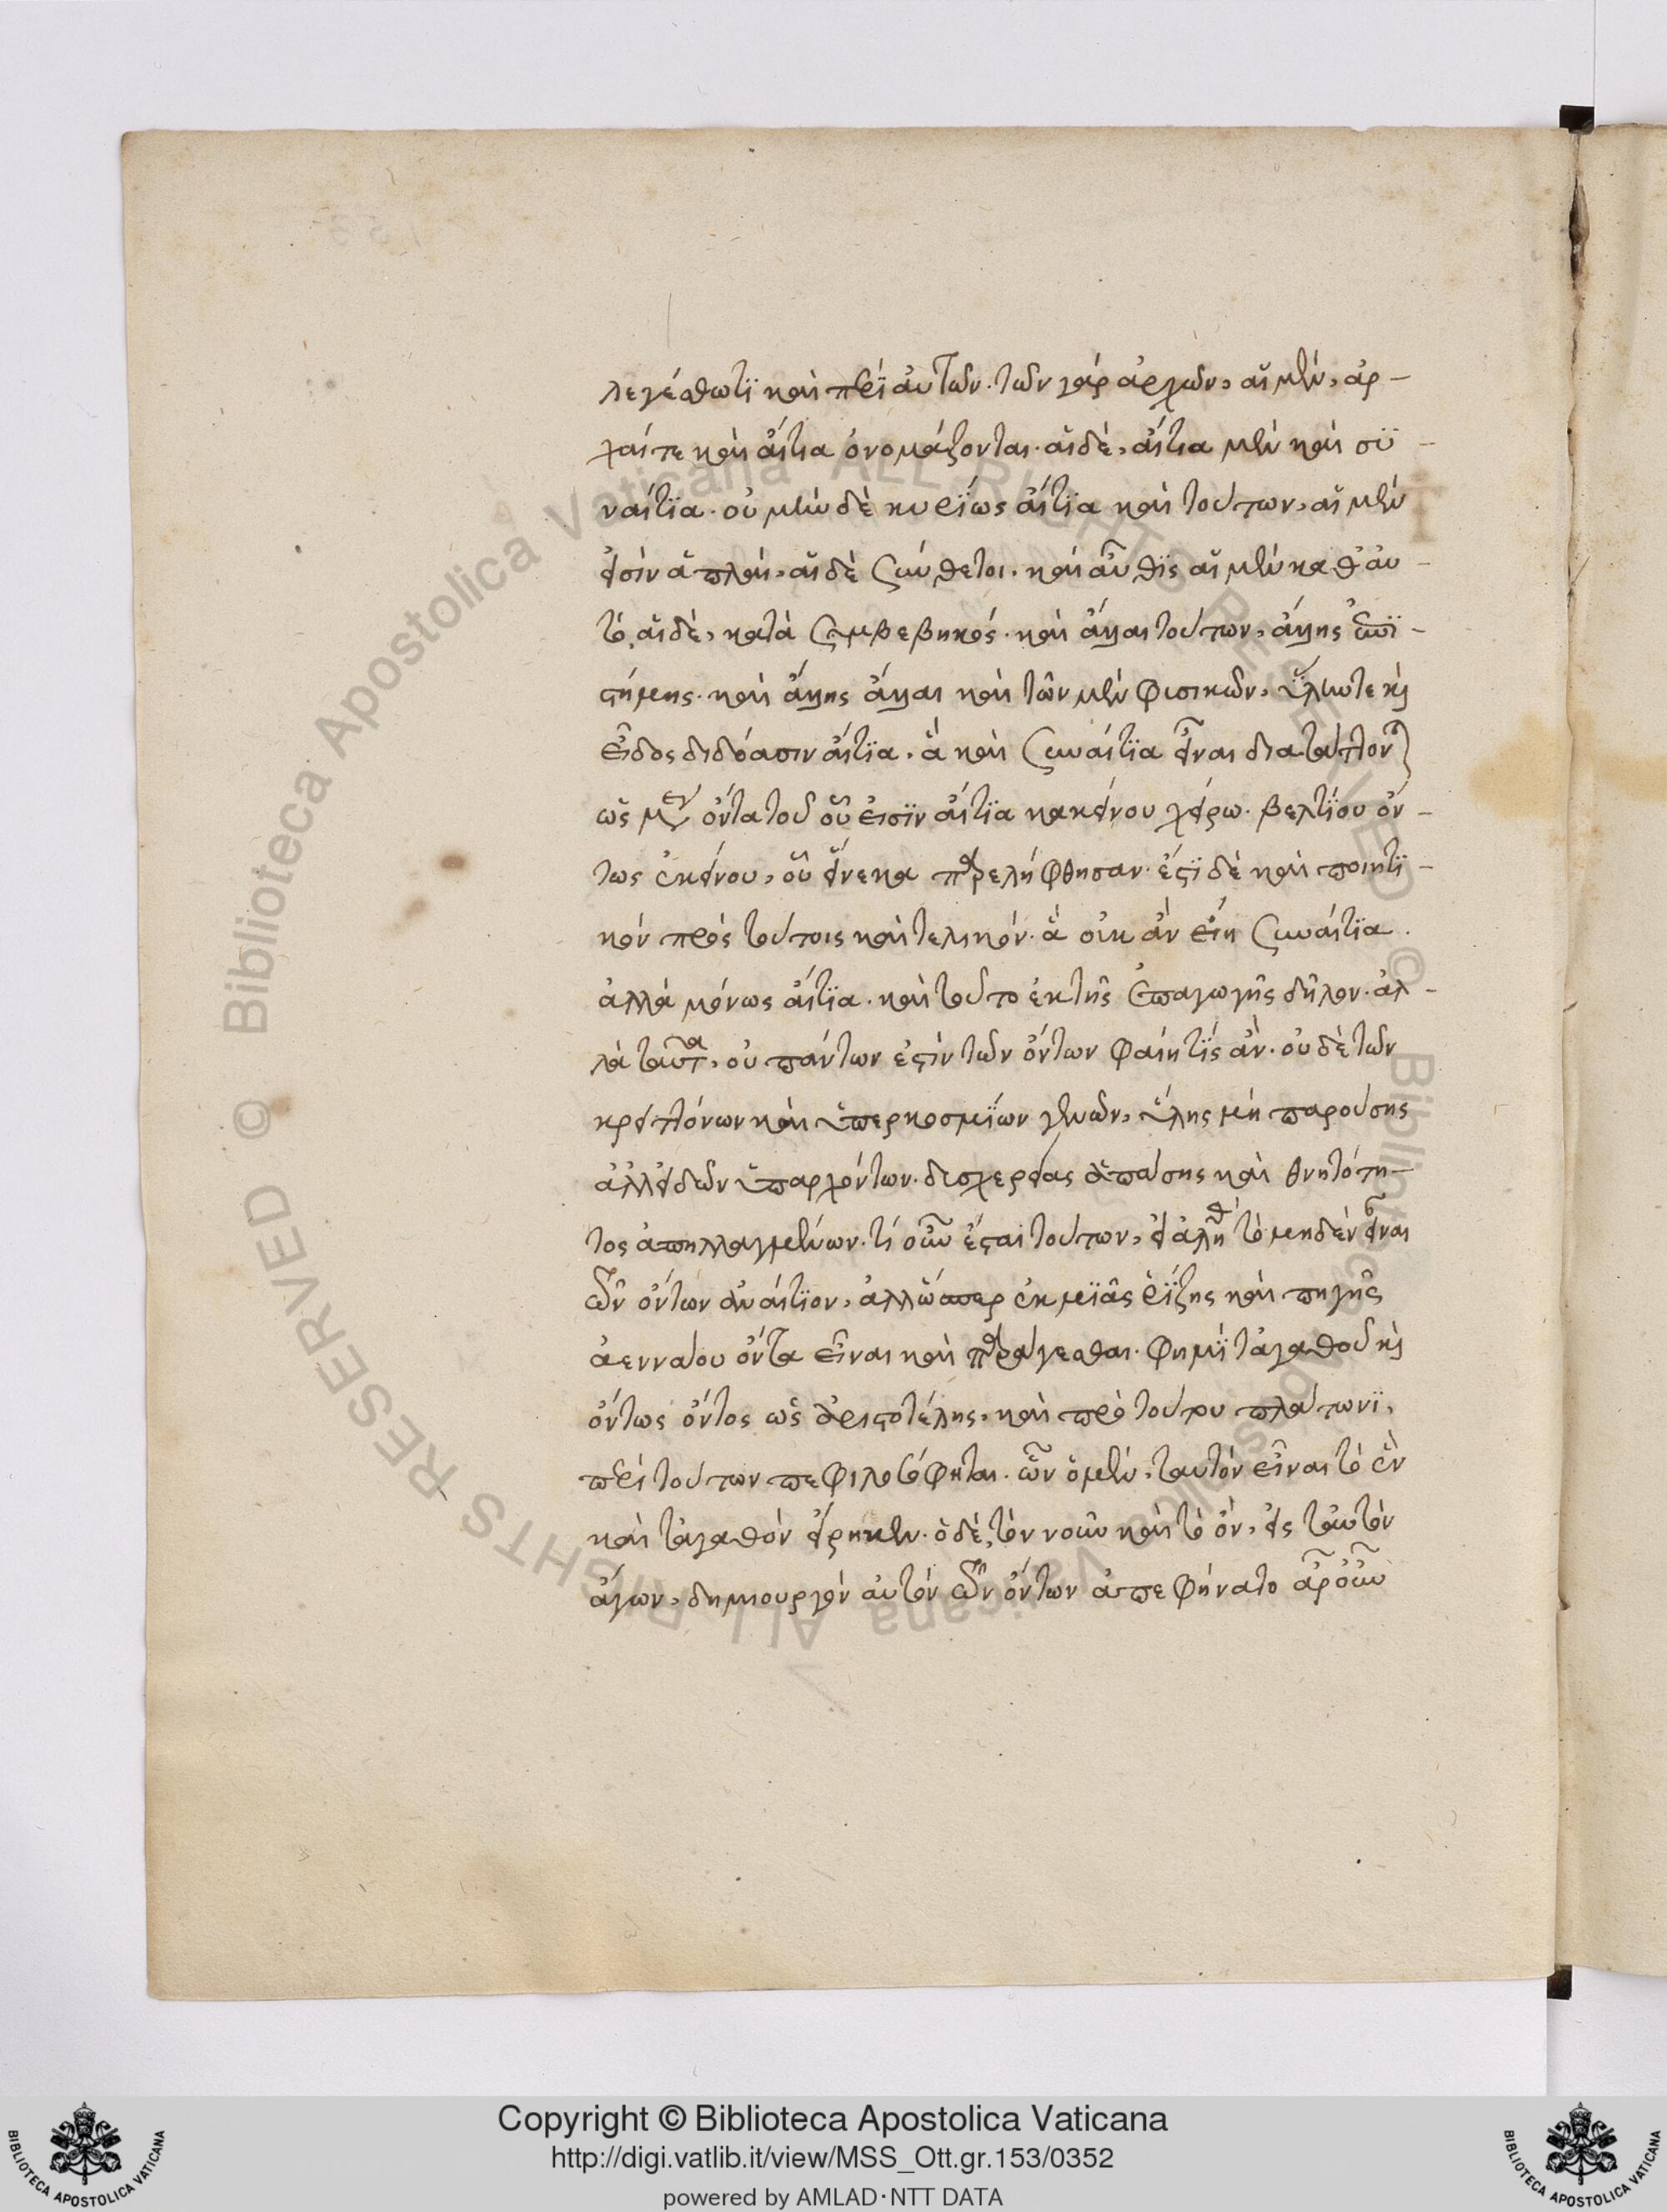 λεγέσθω τϊ καὶ περὶ αὐτῶν. τῶν γάρ ἀρχῶν, αἵ μὲν, ἀρ-
χαί τε καὶ αἴτια ὀνομάζονται. αἵ δὲ, αἴτια μὲν καὶ συ-
ναίτϊα. οὐ μὴν δὲ κυρΐως αἴτϊα καὶ τούτων, αἵ μὲν
εἰσὶν ἁπλαῖ, αἵ δὲ σύνθετοι. καὶ αὖθϊς αἵ μὲν καθ' αὑ-
τό, αἵ δὲ, κατὰ συμβεβηκός. καὶ ἄλλαι τούτων, ἄλλης ἐπϊ-
στήμης. καὶ ἄλλης ἄλλαι καὶ τῶν μὲν φυσικῶν, ὕλην τε κὶ
εἶδος διδόασιν αἴτϊα. ἅ καὶ συναίτϊα εἶναι διαταττον
ὡς μὲν ὄντα τοῦ οὗ εἰσϊν αἴτϊα κακείνου χείρω. βελτΐου ὄν-
τως ἐκείνου, οὗ εἵνεκα παρελήφθησαν. ἔστϊ δὲ καὶ ποιητϊ-
κόν πρὸς τούτοις καὶ τελικόν. ἅ οὐκ ἂν εἴη συναίτϊα.
ἀλλὰ μόνως αἴτϊα. καὶ τοῦτο ἐκ τῆς ἐπαγωγῆς δῆλον. ἀλ-
λὰ ταῦτα, οὐ πάντων ἐστὶν τῶν ὄντων φαίη τΐς ἄν. οὐδὲ τῶν
κρειττόνων καὶ ὑπερκοσμΐων γενῶν, ὕλης μὴ παρούσης
ἀλλ' εἰδῶν ὑπαρχόντων. δισχερείας ἁπάσης καὶ θνητότη-
τος ἀπηλλαγμένων. τί οὖν ἔσται τούτων, εἰ ἀληθὲ τὸ μηδὲν εἶναι
τῶν ὄντων ἀναίτϊον, ἀλλ' ὥσπερ ἐκ μϊᾶς ῥΐζης καὶ πηγῆς
ἀενναίου ὄντα εἶναι καὶ παράγεσθαι. φημὶ τἀγαθοῦ κὶ
ὄντως ὄντος ὡς ἀριστοτέλης, καὶ πρὸ τούτου πλάτωνϊ,
περὶ τούτων πεφιλοσόφηται. ὧν ὁ μὲν, ταυτόν εἶναι τὸ ἓν
καὶ τἀγαθὸν εἴρηκεν. ὁ δὲ, τὸν νοῦν καὶ τὸ ὄν, εἰς ταὐτὸν
ἄγων, δημιουργόν αὐτόν τῶν ὄντων ἀπεφήνατο ἆρ' οὖν
Copyright © Biblioteca Apostolica Vaticana
http://digi.vatlib.it/view/MSS_Ott.gr.153/0352
powered by AMLAD·NTT DATA